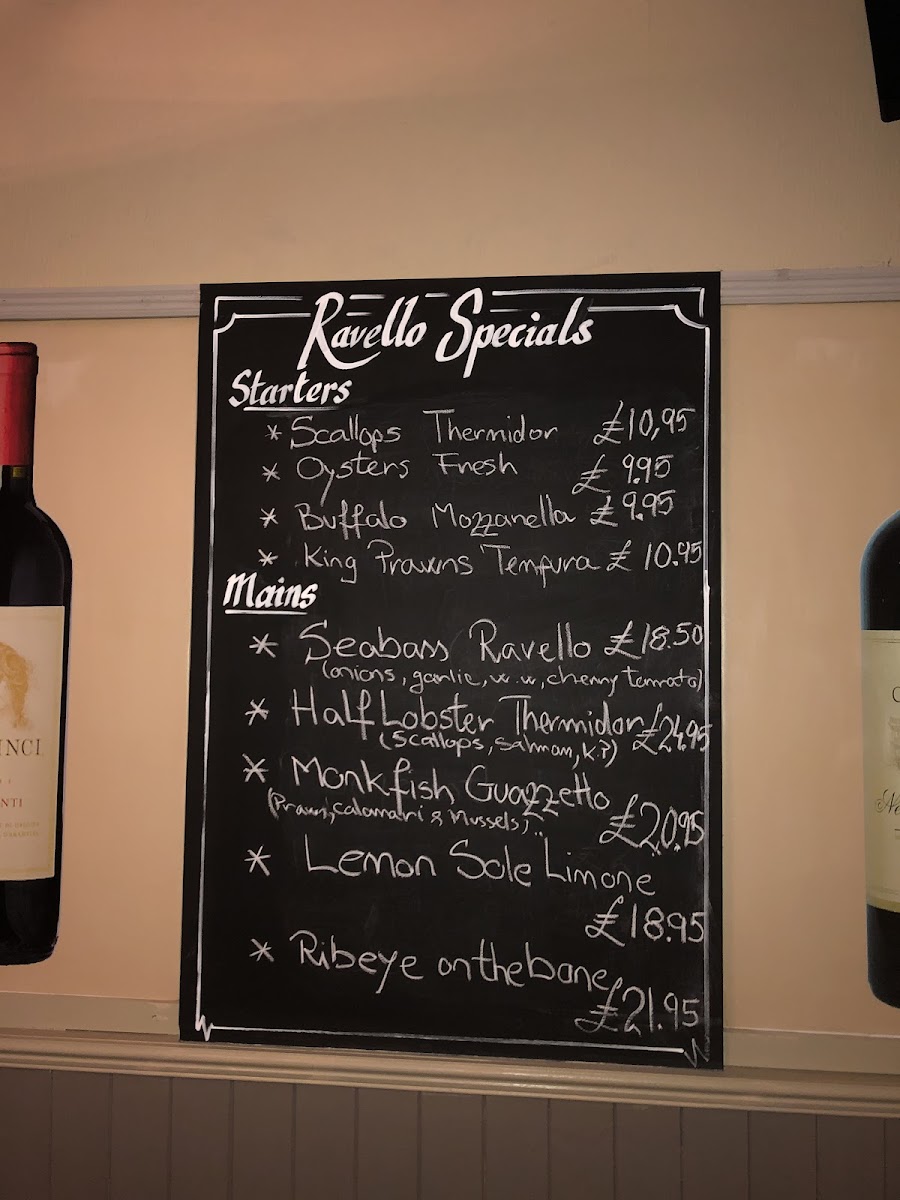 Ravello Specials
Starters
* Scallops Thermidor £10,95
* Oysters Fresh £9.95
* Buffalo Mozzarella £9.95
* King Prawns Tempura £10.95
Mains
* Seabass Ravello £18.50
(onions, garlic, w.w, cherry tomato)
* Half Lobster Thermidor £24.95
(Scallops, salmon, K.P)
* Monkfish Guazzetto
(Prawn, calamari & Mussels)..
£20.95
* Lemon Sole Limone
£18.95
* Ribeye on the bone
£21.95
INCI
NTI